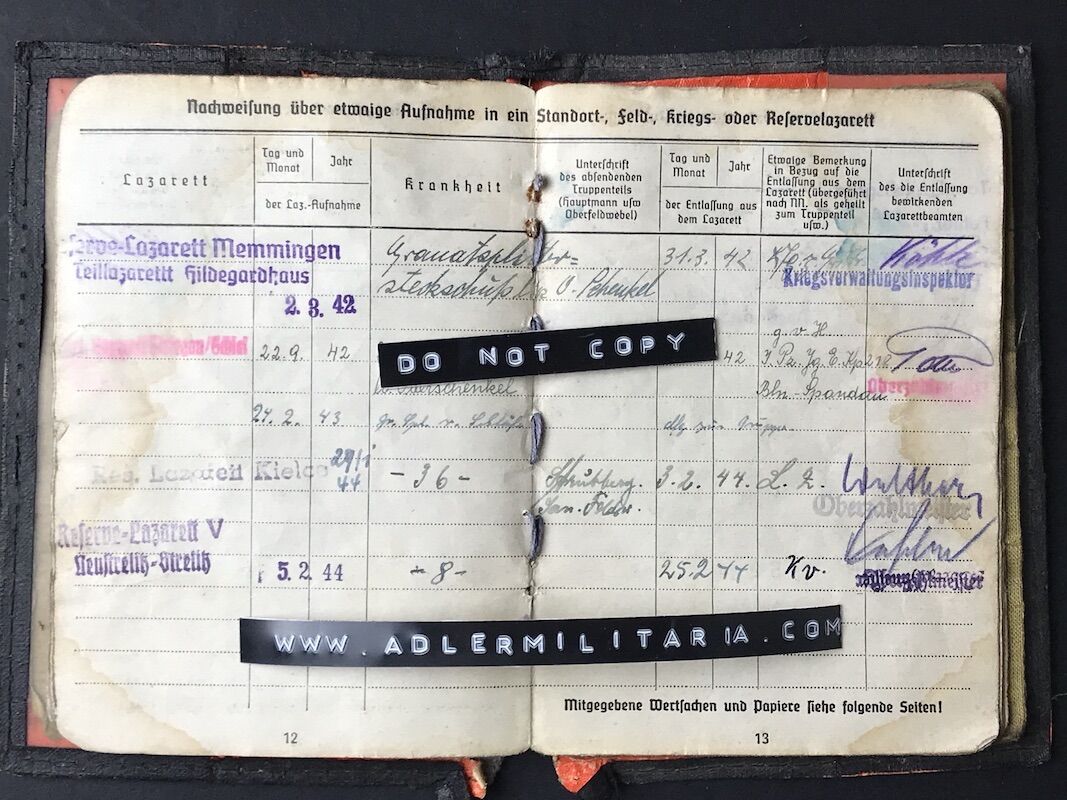 Nachweisung über etwaige Aufnahme in ein Standort-, Feld-, Kriegs- oder Reservelazarett
Lazarett
Tag und Monat
Jahr
der Laz.-Aufnahme
Krankheit
Unterschrift
des absendenden
Truppenteils
(Hauptmann usw
Oberfeldwebel)
Tag und Monat
Jahr
der Entlassung aus
dem Lazarett
Etwaige Bemerkung
in Bezug auf die
Entlassung aus dem
Lazarett (übergeführt
nach NN. als geheilt
zum Truppenteil
usw.)
Unterschrift
des die Entlassung
bewirkenden
Lazarettbeamten
serve-Lazarett Memmingen
Teillazarett Hildegardhaus
2. 3. 42
Granatsplitter=
steckschuß O. Schenkel
31.3. 42
Kriegsverwaltungsinspektor
22.9. 42
DO NOT COPY
Oberschenkel
42
g. v. H
Bln.-Spandau
Oberzahlmeister
24. 2. 43
Res. Lazarett Kielce
44
- 36 -
3. 2. 44.
Oberzahlmeister
Reserve-Lazarett V
Neustrelitz-Strelitz
5. 2. 44
- 8 -
25.2 44
Kv.
WWW.ADLERMILITARIA.COM
Mitgegebene Wertsachen und Papiere siehe folgende Seiten!
12
13